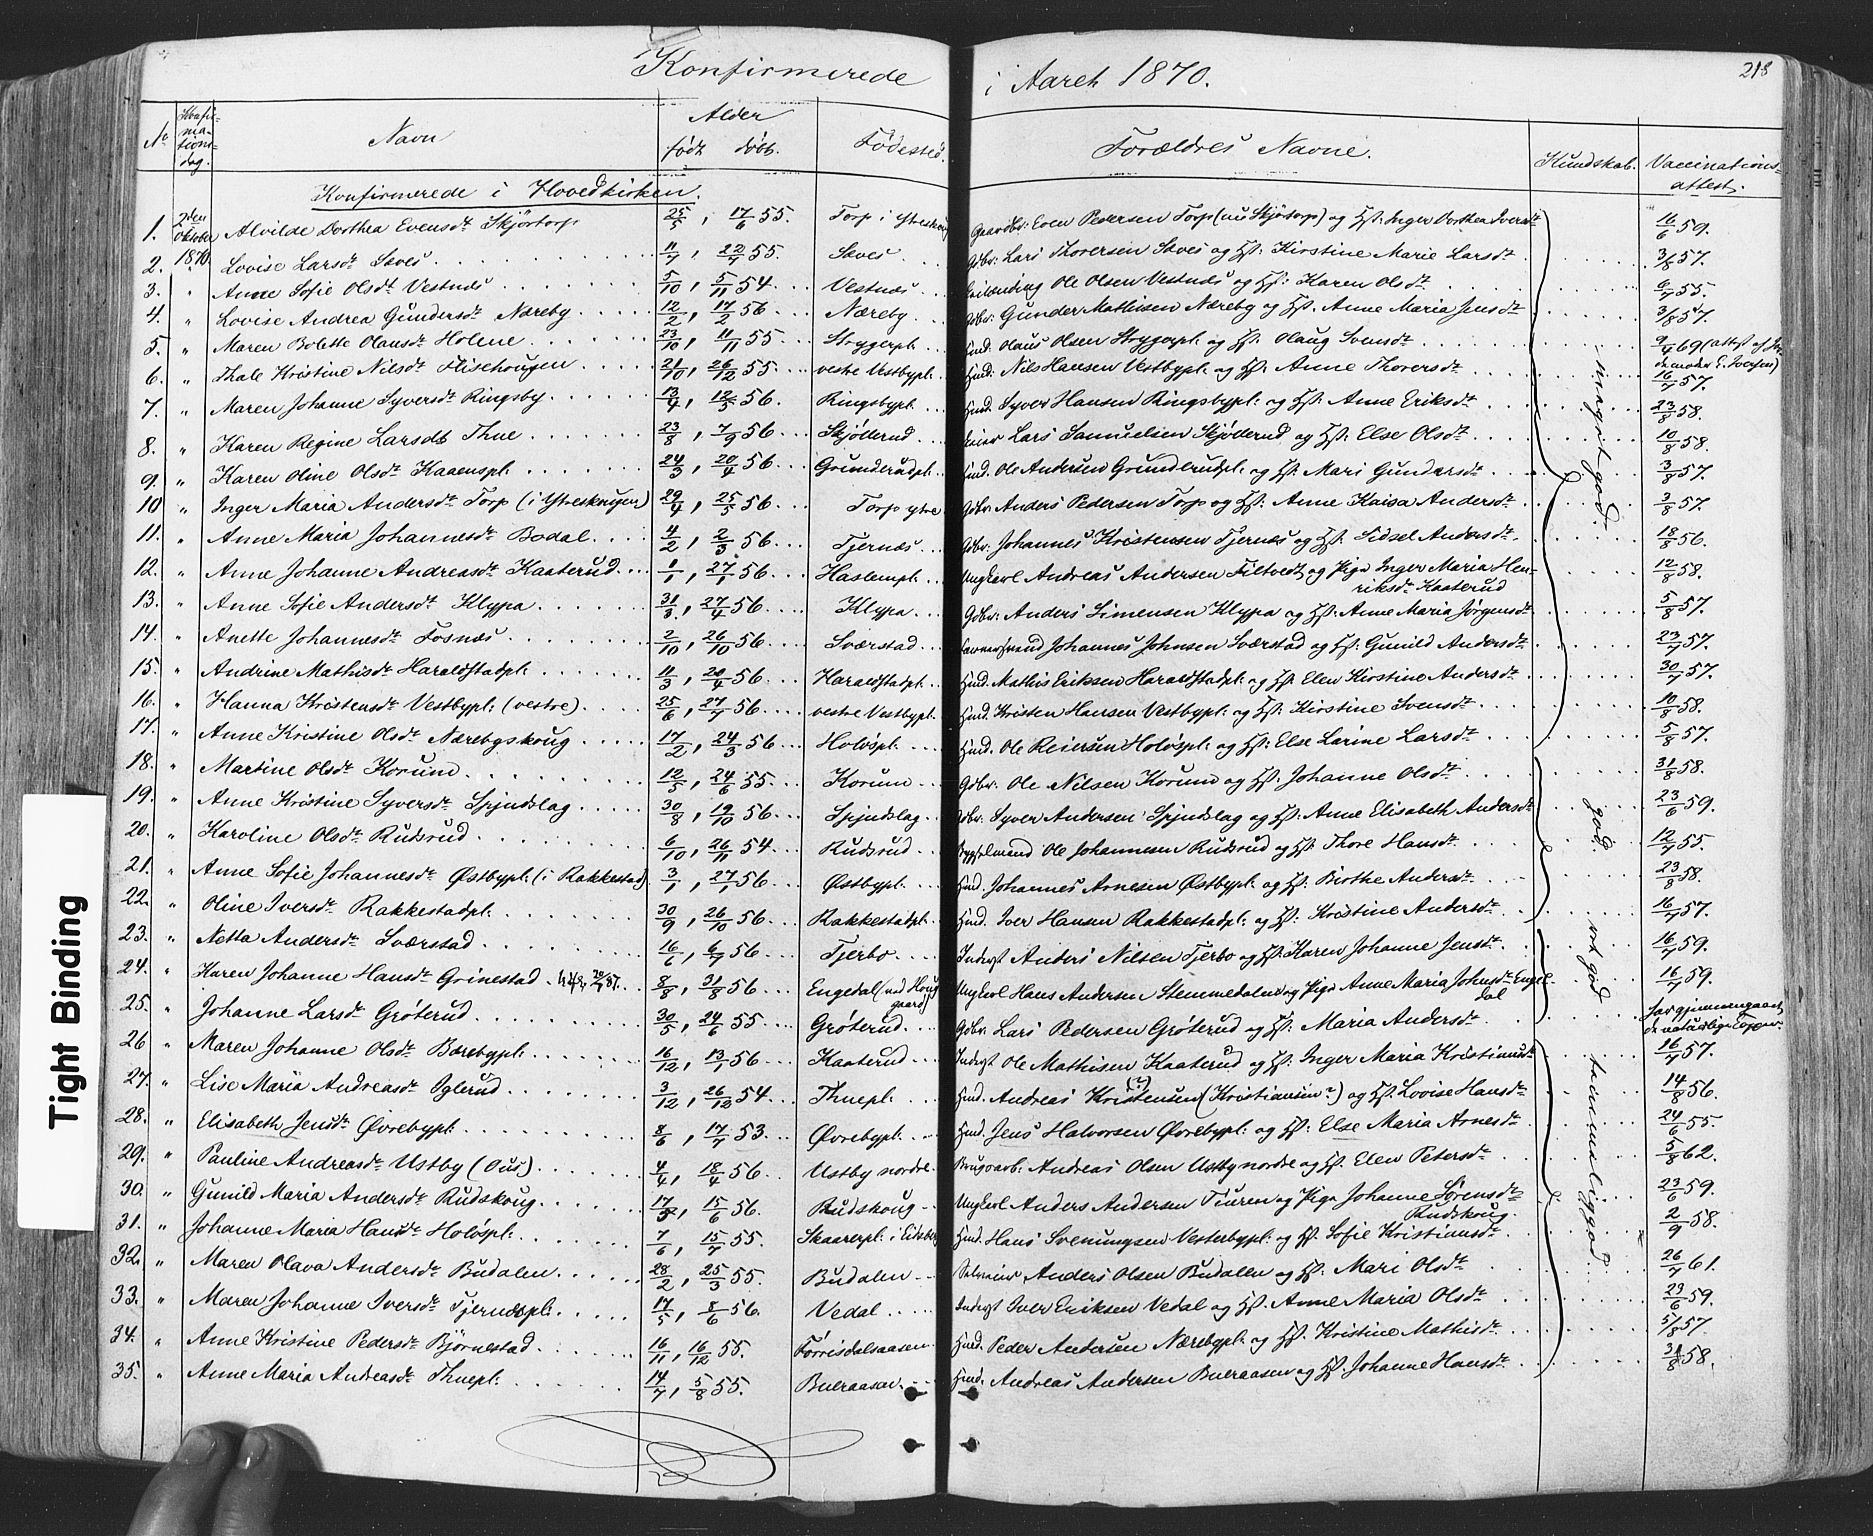 Konfirmerede i Aaret 1870. 218
No Konfir-ma-tions-dag. Navn Alder født døbt. Fødested. Forældres Navne. Kundskab. Vaccinations-attest.
Konfirmerede i Hovedkirken.
1. 2den Oktober 1870 Alvilde Dorthea Evensdr Skjørtorp 25/5, 17/6 55. Torp i Ytreskoug Gaardbr: Even Pedersen Torp (nu Skjøtorp) og Hst. Inger Dorthea Iversdr 16/6 59.
2. " Lovise Larsdr Skoes 11/7, 22/7 55. Skoes Gdbr: Lars Thoresen Skoes og Hst: Kirstine Marie Larsdr 3/8 57.
3. " Anne Sofie Olsdr Vestnæs 5/10, 5/11 54. Vestnæs Ole Olsen Vestnæs og Hst: Karen Olsdr 6/7 55.
4. " Lovise Andrea Gundersdr Næreby 12/2, 17/2 56. Næreby Gdbr: Gunder Mathisen Næreby og Hst. Anne Maria Jensdr 3/8 57.
5. " Maren Bolette Olausdr Holene 23/10, 11/11 55. Strygerpl. Hmd. Olaus Olsen Strygerpl. og Hst. Olaug Svensdr 9/4 69 (attest af Jordemoder E. Iversen)
6. " Thale Kristine Nilsdr Flisehougen 21/10, 26/12 55. vestre Vestbypl. Hmd. Nils Hansen Vestbypl. og Hst. Anne Thoresdr 16/7 57.
7. " Maren Johanne Syversdr Ringsby 13/4, 12/5 56. Ringsbypl. Hmd. Syver Hansen Ringsbypl. og Hst. Anne Eriksdr 23/8 58.
8. " Karen Regine Larsdtr Thue 23/8, 7/9 56. Skjøllerud Lars Samuelsen Skjøllerud og Hst. Else Olsdr 10/8 58.
9. " Karen Oline Olsdr Kaaenspl. 24/3, 20/4 56. Grunderudpl. Hmd. Ole Andersen Grunderudpl. og Hst. Mari Gundersdr 3/8 57.
10 " Inger Maria Andersdr Torp (i Ytreskougen) 29/4, 25/5 56. Torp ytre Gdbr. Anders Pedersen Torp og Hst. Anne Kaisa Andersdr 3/8 57.
11. " Anne Maria Johannesdr Bodal 4/2, 2/3 56. Tjernæs Gdbr. Johannes Kristensen Tjernæs og Hst. Sidsel Andersdr. 18/8 56.
12. " Anne Johanne Andreasdr Kaaterud 1/1, 27/1 56. Haslempl. Ungkarl Andreas Andersen Filtvedt og Pige Inger Maria Hen-riksdr Kaaterud 12/8 58.
13. " Anne Sofie Andersdr Klypa 31/3, 27/4 56. Klypa Gdbr: Anders Simensen Klypa og Hst. Anne Maria Jørgensdr 5/8 57.
14. " Anette Johannesdr Fosnæs 2/10, 26/10 56. Sværstad Johannes Johnsen Sværstad og Hst. Gunild Andersdr 23/7 57.
15. " Andrine Mathisdr Haraldstadpl. 11/3, 20/4 56. Haraldstadpl. Hmd. Mathis Eriksen Haraldstadpl. og Hst. Elen Kirstine Andersdr 30/7 57.
16. " Hanna Kristensdr Vestbypl. (vestre) 25/6, 27/7 56. vestre Vestbypl. Hmd. Kristen Hansen Vestbypl. og Hst. Kirstine Svensdr 10/8 58.
17. " Anne Kristine Olsdr Nærebyskoug 17/2, 24/3 56. Holøspl. Hmd. Ole Reiersen Holøspl. og Hst. Else Larine Larsdr 5/8 57.
meget god.
18. " Martine Olsdr Korum 12/5, 24/6 55. Korum Gdbr. Ole Nilsen Korum og Hst. Johanne Olsdr 31/8 58.
19. " Anne Kristine Syversdr Spjudslag 30/8, 19/10 56. Spjudslag Gdbr. Syver Andersen Spjudslag og Hst. Anne Elisabeth Andersdr 23/6 59.
20. " Karoline Olsdr Rudsrud 6/10, 26/11 54. Rudsrud Bygselmand Ole Johannesen Rudsrud og Hst. Thore Hansdr. 12/7 55.
21. " Anne Sofie Johannesdr Østbypl. (i Rakkestad) 3/1, 27/1 56. Østbypl. Hmd. Johannes Arnesen Østbypl. og Hst. Birthe Andersdr 23/8 58.
22. " Oline Iversdr Rakkestadpl. 30/9, 26/10 56. Rakkestadpl. Hmd. Iver Hansen Rakkestadpl. og Hst. Kristine Andersdr 16/7 57.
god.
23. " Netta Andersdr Sværstad 16/6, 6/7 56. Tjerbo Inderst Anders Nilsen Tjerbo og Hst. Karen Johanne Jensdr. 16/7 59.
24. " Karen Johanne Hansdr Grinestad 8/8, 31/8 56. Engedal (ved Houggaard) Ungkarl Hans Andersen Stemmedalen og Pige Anne Maria Johnsdr Engedal 16/7 59.
25. " Johanne Larsdr Grøterud 30/5, 24/6 55. Grøterud Gdbr. Lars Pedersen Grøterud og Hst. Maria Andersdr har gjennemgaaet de naturlige Kopper
26 " Maren Johanne Olsdr Bærebypl. 16/12, 13/1 56. Kaaterud Inderst Ole Mathisen Kaaterud og Hst. Inger Maria Kristiansdr 16/7 57.
27. " Lise Maria Andreasdr Iglerud 3/12, 26/12 54. Thuepl. Hmd. Andreas Kristensen (?) (Kristiansen?) og Hst. Lovise Hansdr 14/8 56.
28. " Elisabeth Jensdr Øvrebypl. 8/6, 17/7 53. Øvrebypl. Hmd. Jens Halvorsen Øvrebypl. og Hst. Else Maria Arnesdr 24/6 55.
29. " Pauline Andreasdr Ustby (Ous) 4/4, 18/4 56. Ustby nordre Brugsarb. Andreas Olsen Ustby nordre og Hst. Elen Petersdr 5/8 62.
30. " Gunild Maria Andersdr Rudskoug 17/5, 15/6 56. Rudskoug Ungkarl Anders Andersen Tiuren og Pige Johanne Sørensdr Rudskoug. 23/6 59.
31. " Johanne Maria Hansdr Holøspl. 7/6, 15/7 55. Skaarerpl. i Eidsberg Hmd. Hans Svenungsen Vesterbypl. og Hst. Sofie Kristiansdr 2/9 58.
32. " Maren Olava Andersdr Budalen 28/2, 25/3 55. Budalen Selveier Anders Olsen Budalen og Hst. Mari Olsdr 26/7 61.
33. " Maren Johanne Iversdr Tjernæspl. 17/5, 8/6 56. Vedal Inderst Iver Eriksen Vedal og Hst. Anne Maria Olsdr 23/6 59.
34. " Anne Kristine Pedersdr Bjørnestad 16/11, 16/12 55. Førrisdalsaasen Hmd. Peder Andersen Nærebypl. og Hst. Kristine Mathisdr 5/8 57.
35. " Anne Maria Andreasdr Thuepl. 14/7, 5/8 55. Bueraasen Hmd. Andreas Andersen Bueraasen og Hst. Johanne Hansdr 31/8 58.
temmelig god.
Tight Binding